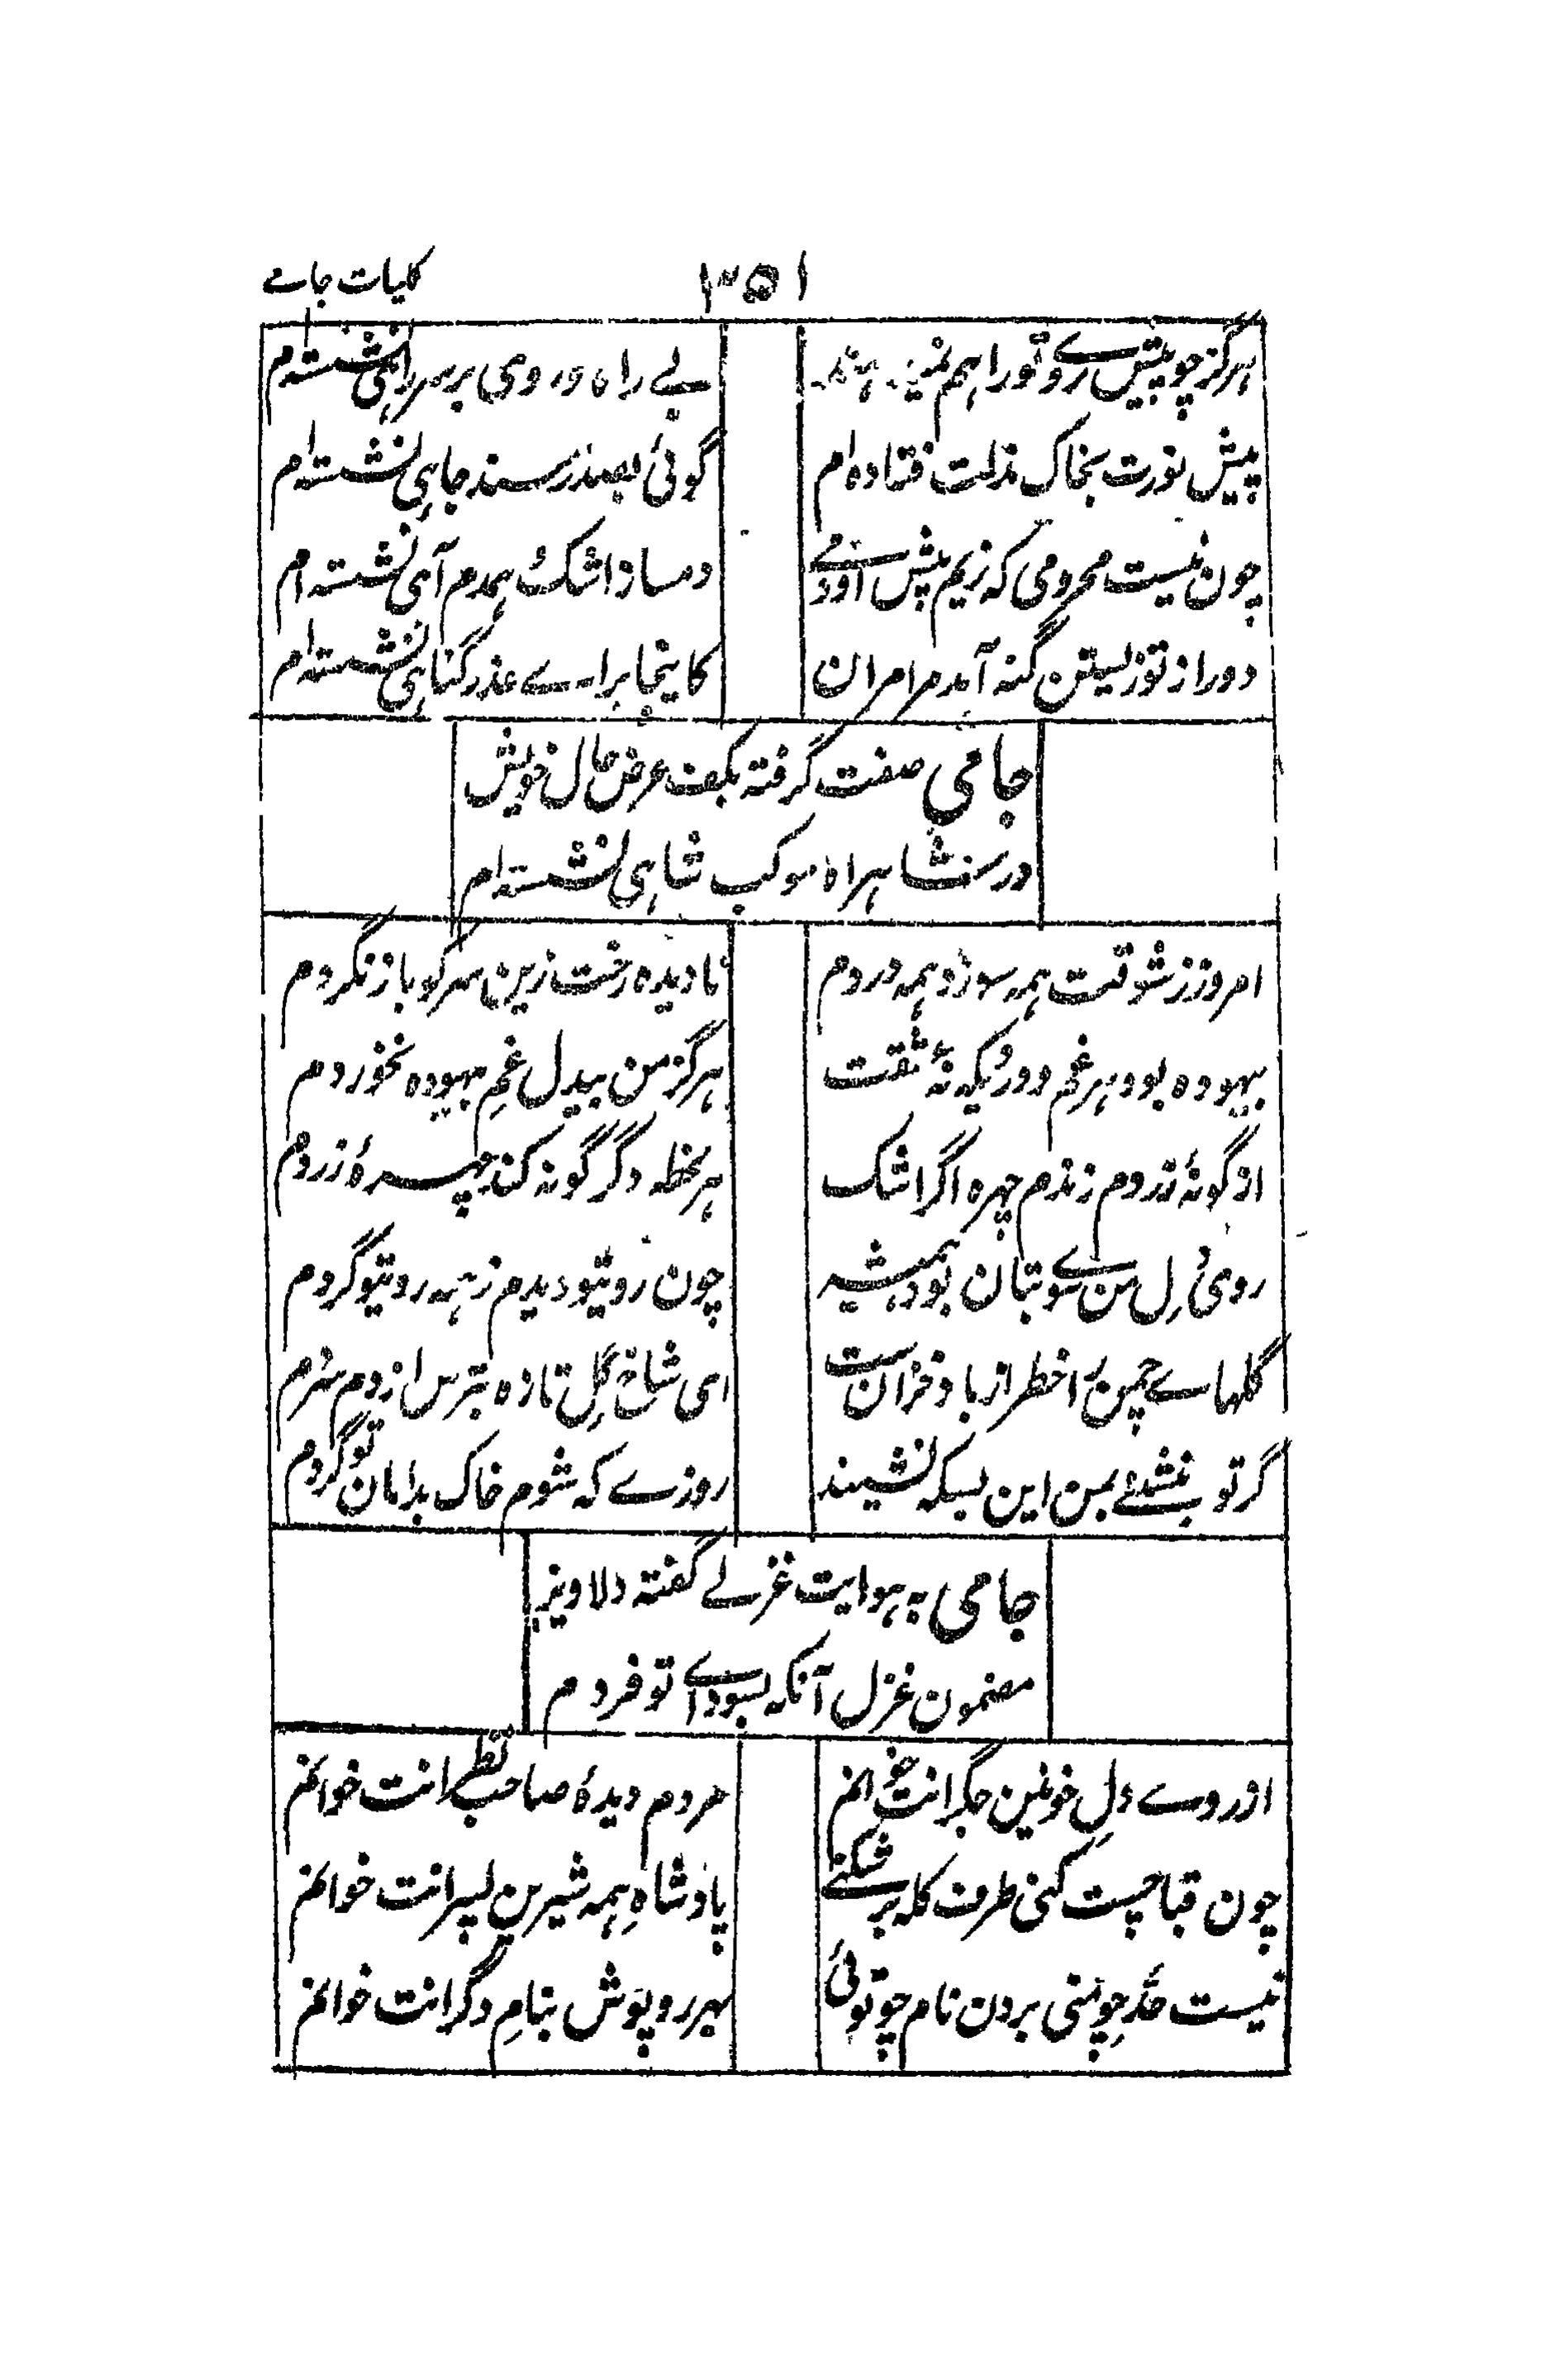 کلیات جامے
۳۵۱
ہرگز چو پیش روے تو راہم نمی
بے راہ و روی بر سر راہی نشستہ ام
پیش تورت بخاک مذلت فتادہ ام
گوئی بصدر مسند جاہی نشستہ ام
چون نیست محرمی کہ زیم پیش او دمے
دمساز اشک و ہمدم آہی نشستہ ام
دور از تو زیستن گنہ آمد مرا مران
کاینجا براے عذر گناہی نشستہ ام
جامی صفت گرفتہ بکف عرض حال خویش
در شاہراہ موکب شاہی نشستہ ام
امروز ز شوقت ہمہ سوز و ہمہ دردم
نادیدہ رخت زین سر کو باز نگردم
بیہودہ بود ہر غم و دردیکہ نہ عشقت
ہرگز من بیدل غمِ بیہودہ نخوردم
از گونۂ زردم نزدم چہرہ اگر اشک
ہر لحظہ دگر گونہ کند چہرۂ زردم
روی دِل من سوے بتان بود ہمیشہ
چون رویتو دیدم ز ہمہ رویتو گردم
گلہاے چمن را خطر از باد خزان ست
ای شاخ گِل تازہ بترس از دم سردم
گر تو ننشینی بمن این بسکہ نشیند
روزے کہ شوم خاک بدامان تو گردم
جامی بہ ہوایت غزلے گفتہ دلاویز
مضمون غزل آنکہ بسوداے تو فردم
از روے دلِ خونین جگرانت خوانم
مردم دیدۂ صاحب نظرانت خوانم
چون قبا چست کنی طرف کلہ بر شکنے
پادشاہِ ہمہ شیرین پسرانت خوانم
نیست حدِّ چو منی بردن نام چو توئی
بہر روپوش بنامِ دگرانت خوانم